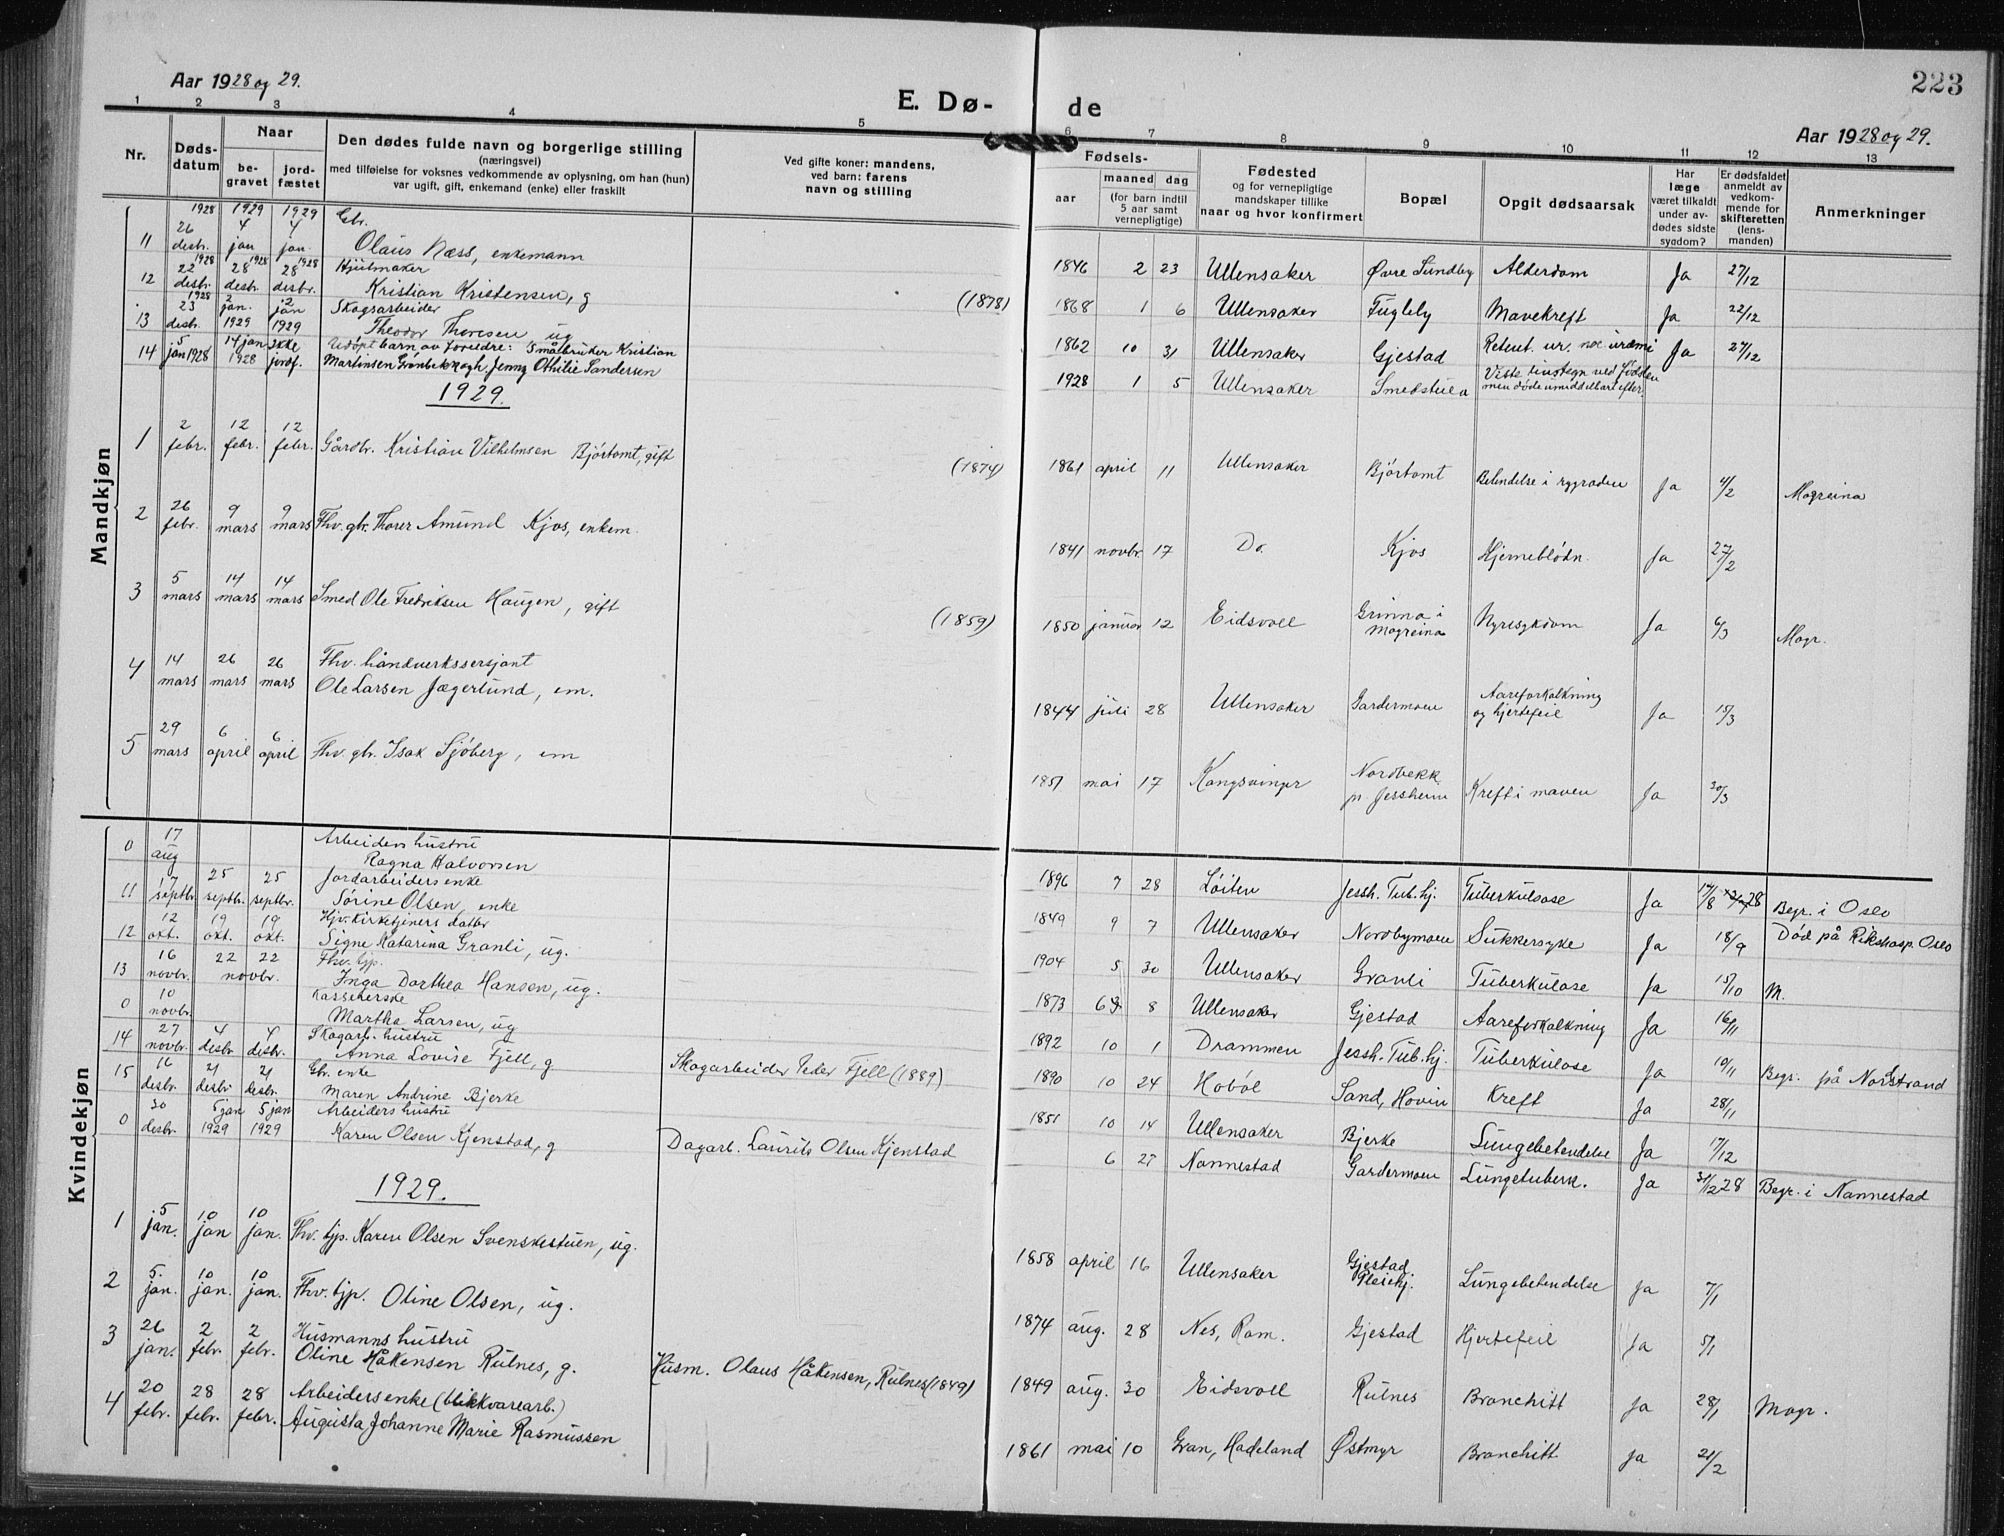 223
Aar 1928 og 29.
E. Dø-
de
Aar 1928 og 29.
1 2 3 4 5 6 7 8 9 10 11 12 13
Nr.
Døds-
datum
Naar
be-
gravet
jord-
fæstet
Den dødes fulde navn og borgerlige stilling
(næringsvei)
med tilføielse for voksnes vedkommende av oplysning, om han (hun)
var ugift, gift, enkemand (enke) eller fraskilt
Ved gifte koner: mandens,
ved barn: farens
navn og stilling
Fødsels-
aar
maaned dag
(for barn indtil
5 aar samt
vernepligtige)
Fødested
og for vernepligtige
mandskaper tillike
naar og hvor konfirmert
Bopæl
Opgit dødsaarsak
Har
læge
været tilkaldt
under av-
dødes sidste
sygdom?
Er dødsfaldet
anmeldt av
vedkom-
mende for
skifteretten
(lens-
manden)
Anmerkninger
Mandkjøn
1928 1929 1929 Gbr.
11 26 desbr. 4 jan 4 jan. Olaus Næss, enkemann 1846 2 23 Ullensaker Øvre Sundby Alderdom Ja 27/12
1928 1928 1928 Hjulmaker
12 22 desbr. 28 desbr. 28 desbr. Kristian Kristensen, g (1878) 1868 1 6 Ullensaker Fugleby Mavekreft Ja 22/12
1928 Skogsarbeider
13 23 desbr. 2 jan. 1929 2 jan 1929 Theodor Thoresen ug 1862 10 31 Ullensaker Gjestad Retent. ur. noc uræmi Ja 27/12
14 5 jan 1928 14 jan 1928 ikke jordf. Udøpt barn av foreldre: Småbruker Kristian
Martinsen Grønbekkhagh, Jenny Othilie Sandersen 1928 1 5 Ullensaker Smedstua Viste livstegn ved fødslen
men døde umiddelbart efter.
1929.
1 2 febr. 12 febr. 12 febr. Gårdbr. Kristian Vilhelmsen Bjørtomt, gift (1874) 1861 april 11 Ullensaker Bjørtomt Betendelse i rygraden Ja 4/2 Mogreina
2 26 febr. 9 mars 9 mars Fhv. gbr. Thorer Amund Kjos, enkem. 1841 novbr. 17 Do. Kjos Hjerneblødn. Ja 27/2
3 5 mars 14 mars 14 mars Smed Ole Fredriksen Haugen, gift (1859) 1850 januar 12 Eidsvoll Grinna i
Mogreina Nyresykdom Ja 6/3 Mogr.
4 14 mars 26 mars 26 mars Fhv. håndverkssersjant
Ole Larsen Jægerlund, em. 1844 juli 28 Ullensaker Gardermoen Aareforkalkning
og hjertefeil Ja 15/3
5 29 mars 6 april 6 april Fhv. gbr. Isak Sjøberg, em 1851 mai 17 Kongsvinger Nordbekk
pr. Jessheim Kreft i maven Ja 30/3
Kvindekjøn
0 17 aug Arbeiders hustru
Ragna Halvorsen 1896 7 28 Løiten Jessh. Tub. hj. Tuberkulose Ja 17/8 28 Begr. i Oslo
11 17 septbr. 25 septbr. 25 septbr. Jordarbeiders enke
Sørine Olsen, enke 1849 9 7 Ullensaker Nordbymoen Sukkersyke Ja 18/9 Død på Rikshosp. Oslo
12 12 okt. 19 okt. 19 okt. Hjv. Kirketjeners datter
Signe Katarina Granli, ug. 1904 5 30 Ullensaker Granli Tuberkulose Ja 15/10 M.
13 16 novbr. 22 22 novbr. Fhv. tjp.
Inga Dorthea Hansen, ug. 1873 6 8 Ullensaker Gjestad Aareforkalkning Ja 16/11
0 10 novbr. Kassererske
Martha Larsen, ug 1892 10 1 Drammen Jessh. Tub. hj. Tuberkulose Ja 10/11 Begr. på Nordstrand
14 27 novbr. 4 desbr. 4 desbr. Skogarb. hustru
Anna Lovise Fjell, g Skogarbeider Peder Fjell (1889) 1890 10 24 Hobøl Sand, Hovin Kreft Ja 28/11
15 16 desbr. 21 desbr. 21 desbr. Gbr. enke
Maren Andrine Bjerke 1851 10 14 Ullensaker Bjerke Lungebetendelse Ja 17/12
0 30 desbr. 5 jan 1929 5 jan 1929 Arbeiders hustru
Karen Olsen Kjenstad, g Dagarb. Laurits Olsen Kjenstad 6 27 Nannestad Gardermoen Lungetuberk. Ja 31/12 28 Begr. i Nannestad
1929.
1 5 jan. 10 jan 10 jan. Fhv. tjp. Karen Olsen Svenskestuen, ug. 1858 april 16 Ullensaker Gjestad
Pleiehj. Lungebetendelse Ja 7/1
2 5. jan. 10 jan. 10 jan. Fhv. tjp. Oline Olsen, ug. 1874 aug. 28 Nes, Rom. Gjestad Hjertefeil Ja 5/1
3 26 jan. 2 febr. 2 febr. Husmanns hustru
Oline Håkensen Rulnes, g. Husm. Olaus Håkensen, Rulnes (1849) 1849 aug. 30 Eidsvoll Rulnes Bronchitt Ja 28/1 Mogr.
4 20 febr. 28 febr. 28 febr. Arbeidersenke (blikkvarearb.)
Augusta Johanne Marie Rasmussen 1861 mai 10 Gran, Hadeland Østmyr Bronchitt Ja 21/2